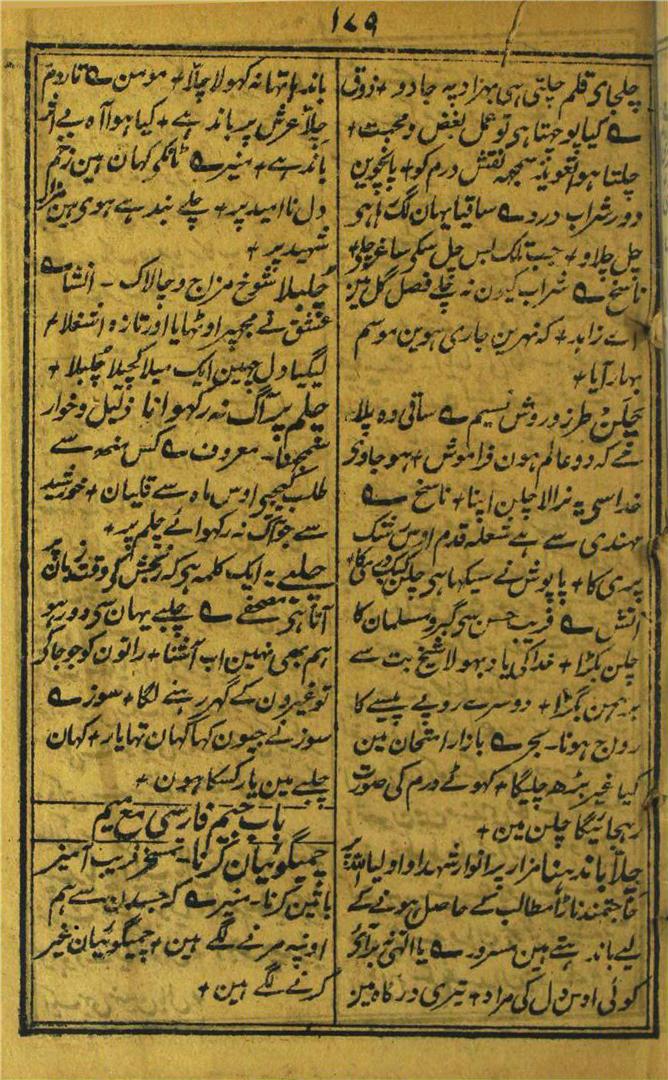 ۱۷۹
چلجای قلم چلتی ہی بہزاد پہ جادو + ذوق
ے کیا پوچہتا ہی تو عمل بغض و محبت +
چلتا ہوا تعویذ سمجہہ نقش درم کو + پانچوین
دور شراب درد ے ساقیا یہان لگ رہا ہی
چل چلاو + جب تلک بس چل سکی ساغر چلی
ناسخ ے شراب کیون نہ چلے فصل گل مین
اے زاہد + کہ نہرین جاری ہوین موسم
بہار آیا +
چلن طرز و روش نسیم ے ساقی وہ پلا
مے کہ دو عالم ہون فراموش + ہو جاوی
خدا سی یہ نرالا چلن اپنا + ناسخ ے
مہندی سے ہے شعلہ قدم اوس رشک
پری کا + پاپوش نے سیکہا ہی چلن کبک دری کا
آتش ے فریب حسن سی گبر و مسلمان کا
چلن بگڑا + خدا کی یاد بہولا شیخ بت سے
برہمن بگڑا + دوسرے روپے پیسے کا
رواج ہونا - بحر ے بازار امتحان مین
کیا غیر بڑھ چلیگا + کہوٹے درم کی صورت
رہجائیگا چلن مین +
چلّا باندہنا مزار پر انوار شہدا و اولیا اللہ پر
حاجتمند ناڑا مطالب کے حاصل ہونے کے
لیے باندہتے ہین مسرور ے یا الٰہی نہ بر آئے
کوئی اوس دل کی مراد + تیری درگاہ مین
باندہا تہا نہ کہولا چلّا + مومن ے تا روم
چلّا عرش پر باندہے + کیا ہوا آہ بے اثر
باندہے + منیر ے ٹانکی کہان ہین زخم
دل نا امید پر + چلے بندہے ہوی ہین مزار
شہید پر +
چلبلا شوخ مزاج و چالاک - انشا ے
عشق نے مجہپر اوٹہایا اور تازہ اشتغلا +
لیگیا دل چہین ایک میلا کچیلا چلبلا +
چلم پر آگ نہ رکہوانا ذلیل و خوار
سمجہنا - معروف ے کس منہہ سے
طلب کیجی اوس ماہ سے قلیان + خورشید
سے جو آگ نہ رکہوائے چلم پر +
چلیے یہ ایک کلمہ ہی کہ رنجش کے وقت زبان پر
آتا ہی مصحفی ے چلیے یہان سی دور ہو
ہم بہی نہین اب آشنا + راتون کو جو جاکر
تو غیرون کے گہر رہنے لگا + سوز ے
سوز نے جیون کہا کہان تہا یار + کہان
چلیے مین یار کسکا ہون +
باب جیم فارسی مع میم
چمیگوئیان کرنا - تمسخر فریب آمیز
باتین کرنا - منیر ے کہ جسدن سے ہم
اونپہ مرنے لگے ہین + چمیگوئیان غیر
کرنے لگے ہین +